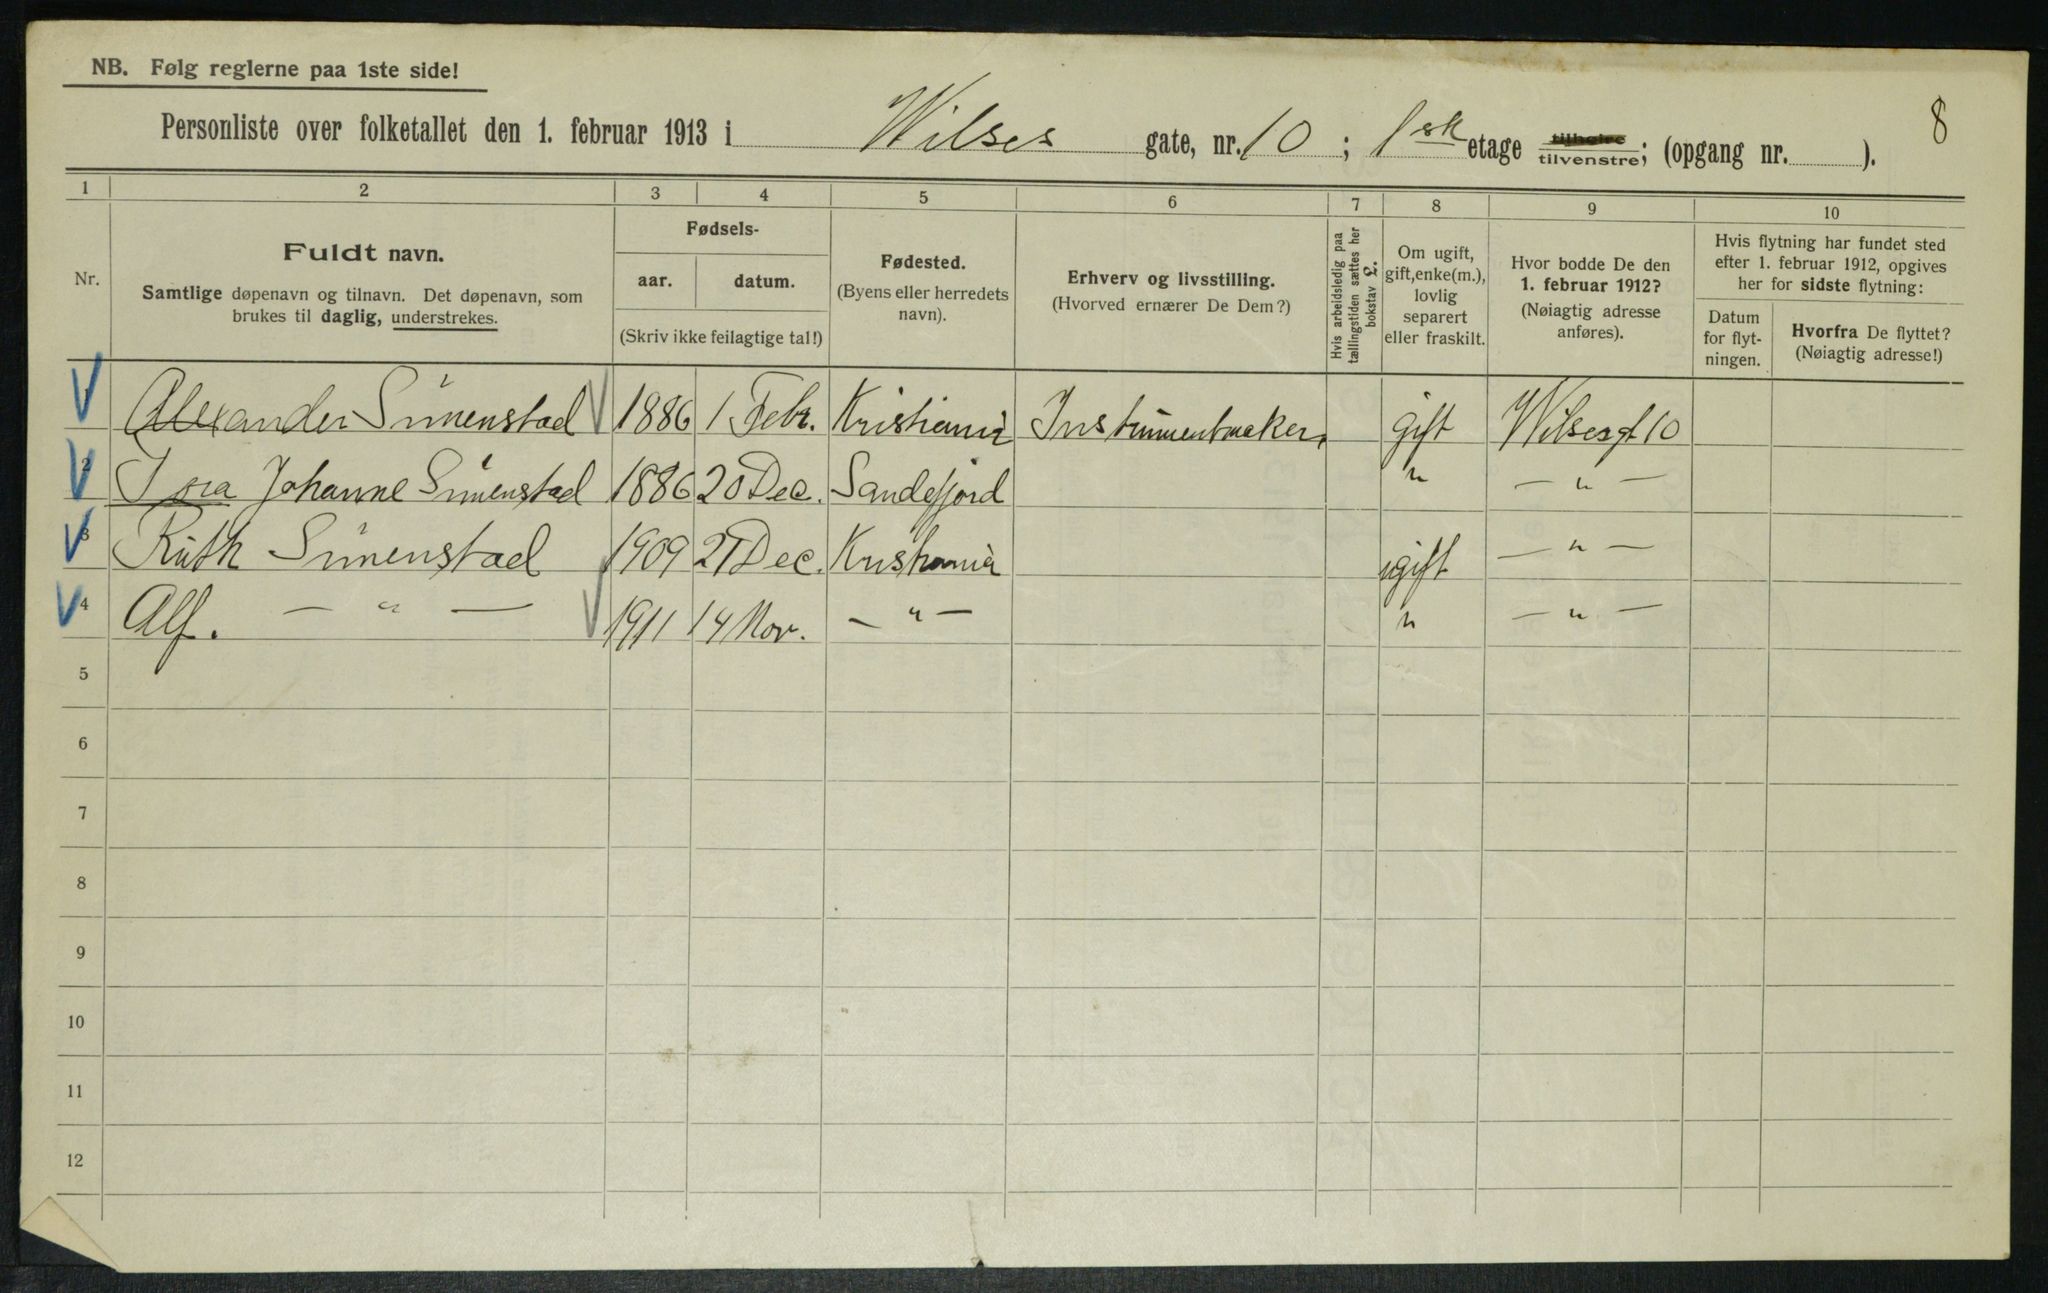 NB. Følg reglerne paa 1ste side!
8
Personliste over folketallet den 1. februar 1913 i Wilses gate, nr. 10; 1ste etage tilhøire tilvenstre; (opgang nr. ).
1 2 3 4 5 6 7 8 9 10
Nr.
Fuldt navn.
Samtlige døpenavn og tilnavn. Det døpenavn, som
brukes til daglig, understrekes.
Fødsels-
aar. datum.
(Skriv ikke feilagtige tal!)
Fødested.
(Byens eller herredets
navn).
Erhverv og livsstilling.
(Hvorved ernærer De Dem?)
Hvis arbeidsledig paa
tællingstiden sættes her
bokstav £.
Om ugift,
gift, enke(m.),
lovlig
separert
eller fraskilt.
Hvor bodde De den
1. februar 1912?
(Nøiagtig adresse
anføres).
Hvis flytning har fundet sted
efter 1. februar 1912, opgives
her for sidste flytning:
Datum
for flyt-
ningen.
Hvorfra De flyttet?
(Nøiagtig adresse!)
1 Alexander Simenstad 1886 1 Febr. Kristiania Instrumentmaker gift Wilsesgt 10
2 Johanne Simenstad 1886 20 Dec. Sandefjord " — " —
3 Ruth Simenstad 1909 21 Dec. Kristiania ugift — " —
4 Alf. — " — 1911 14 Nov. — " — " — " —
5
6
7
8
9
10
11
12